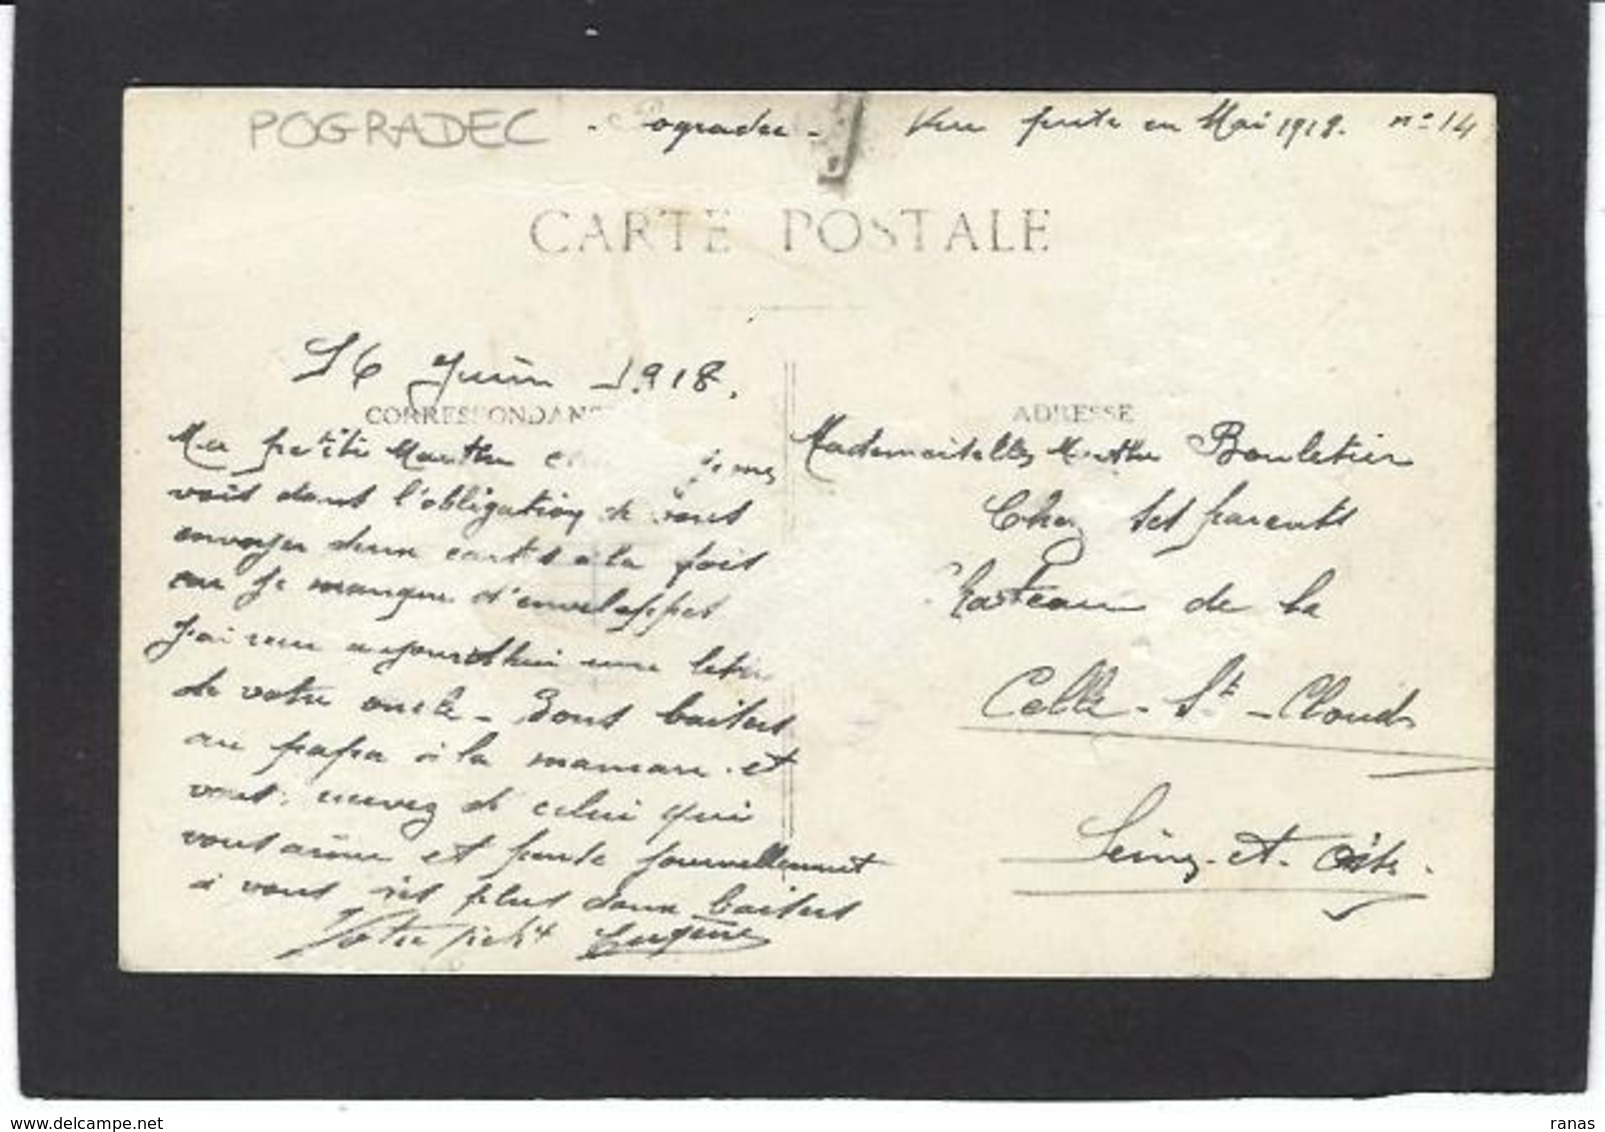 POGRADEC - Pogradec - Vue prise en Mai 1918. n° 14
CARTE POSTALE
16 Juin 1918.
CORRESPONDANCE
Ma petite Marthe
vois dans l'obligation de vous
envoyer deux cartes à la fois
car je manque d'enveloppes
J'ai reçu aujourdhui une lettre
de votre oncle - Bons baisers
au papa à la maman et
vous recevez de celui qui
vous aime et pense journellement
à vous ses plus doux baisers
Votre petit Eugène
ADRESSE
Mademoiselle Marthe Bouletier
Chez ses parents
Chateau de la
Celle - St - Cloud
Seine-et-Oise.
delcampe.net
ranas